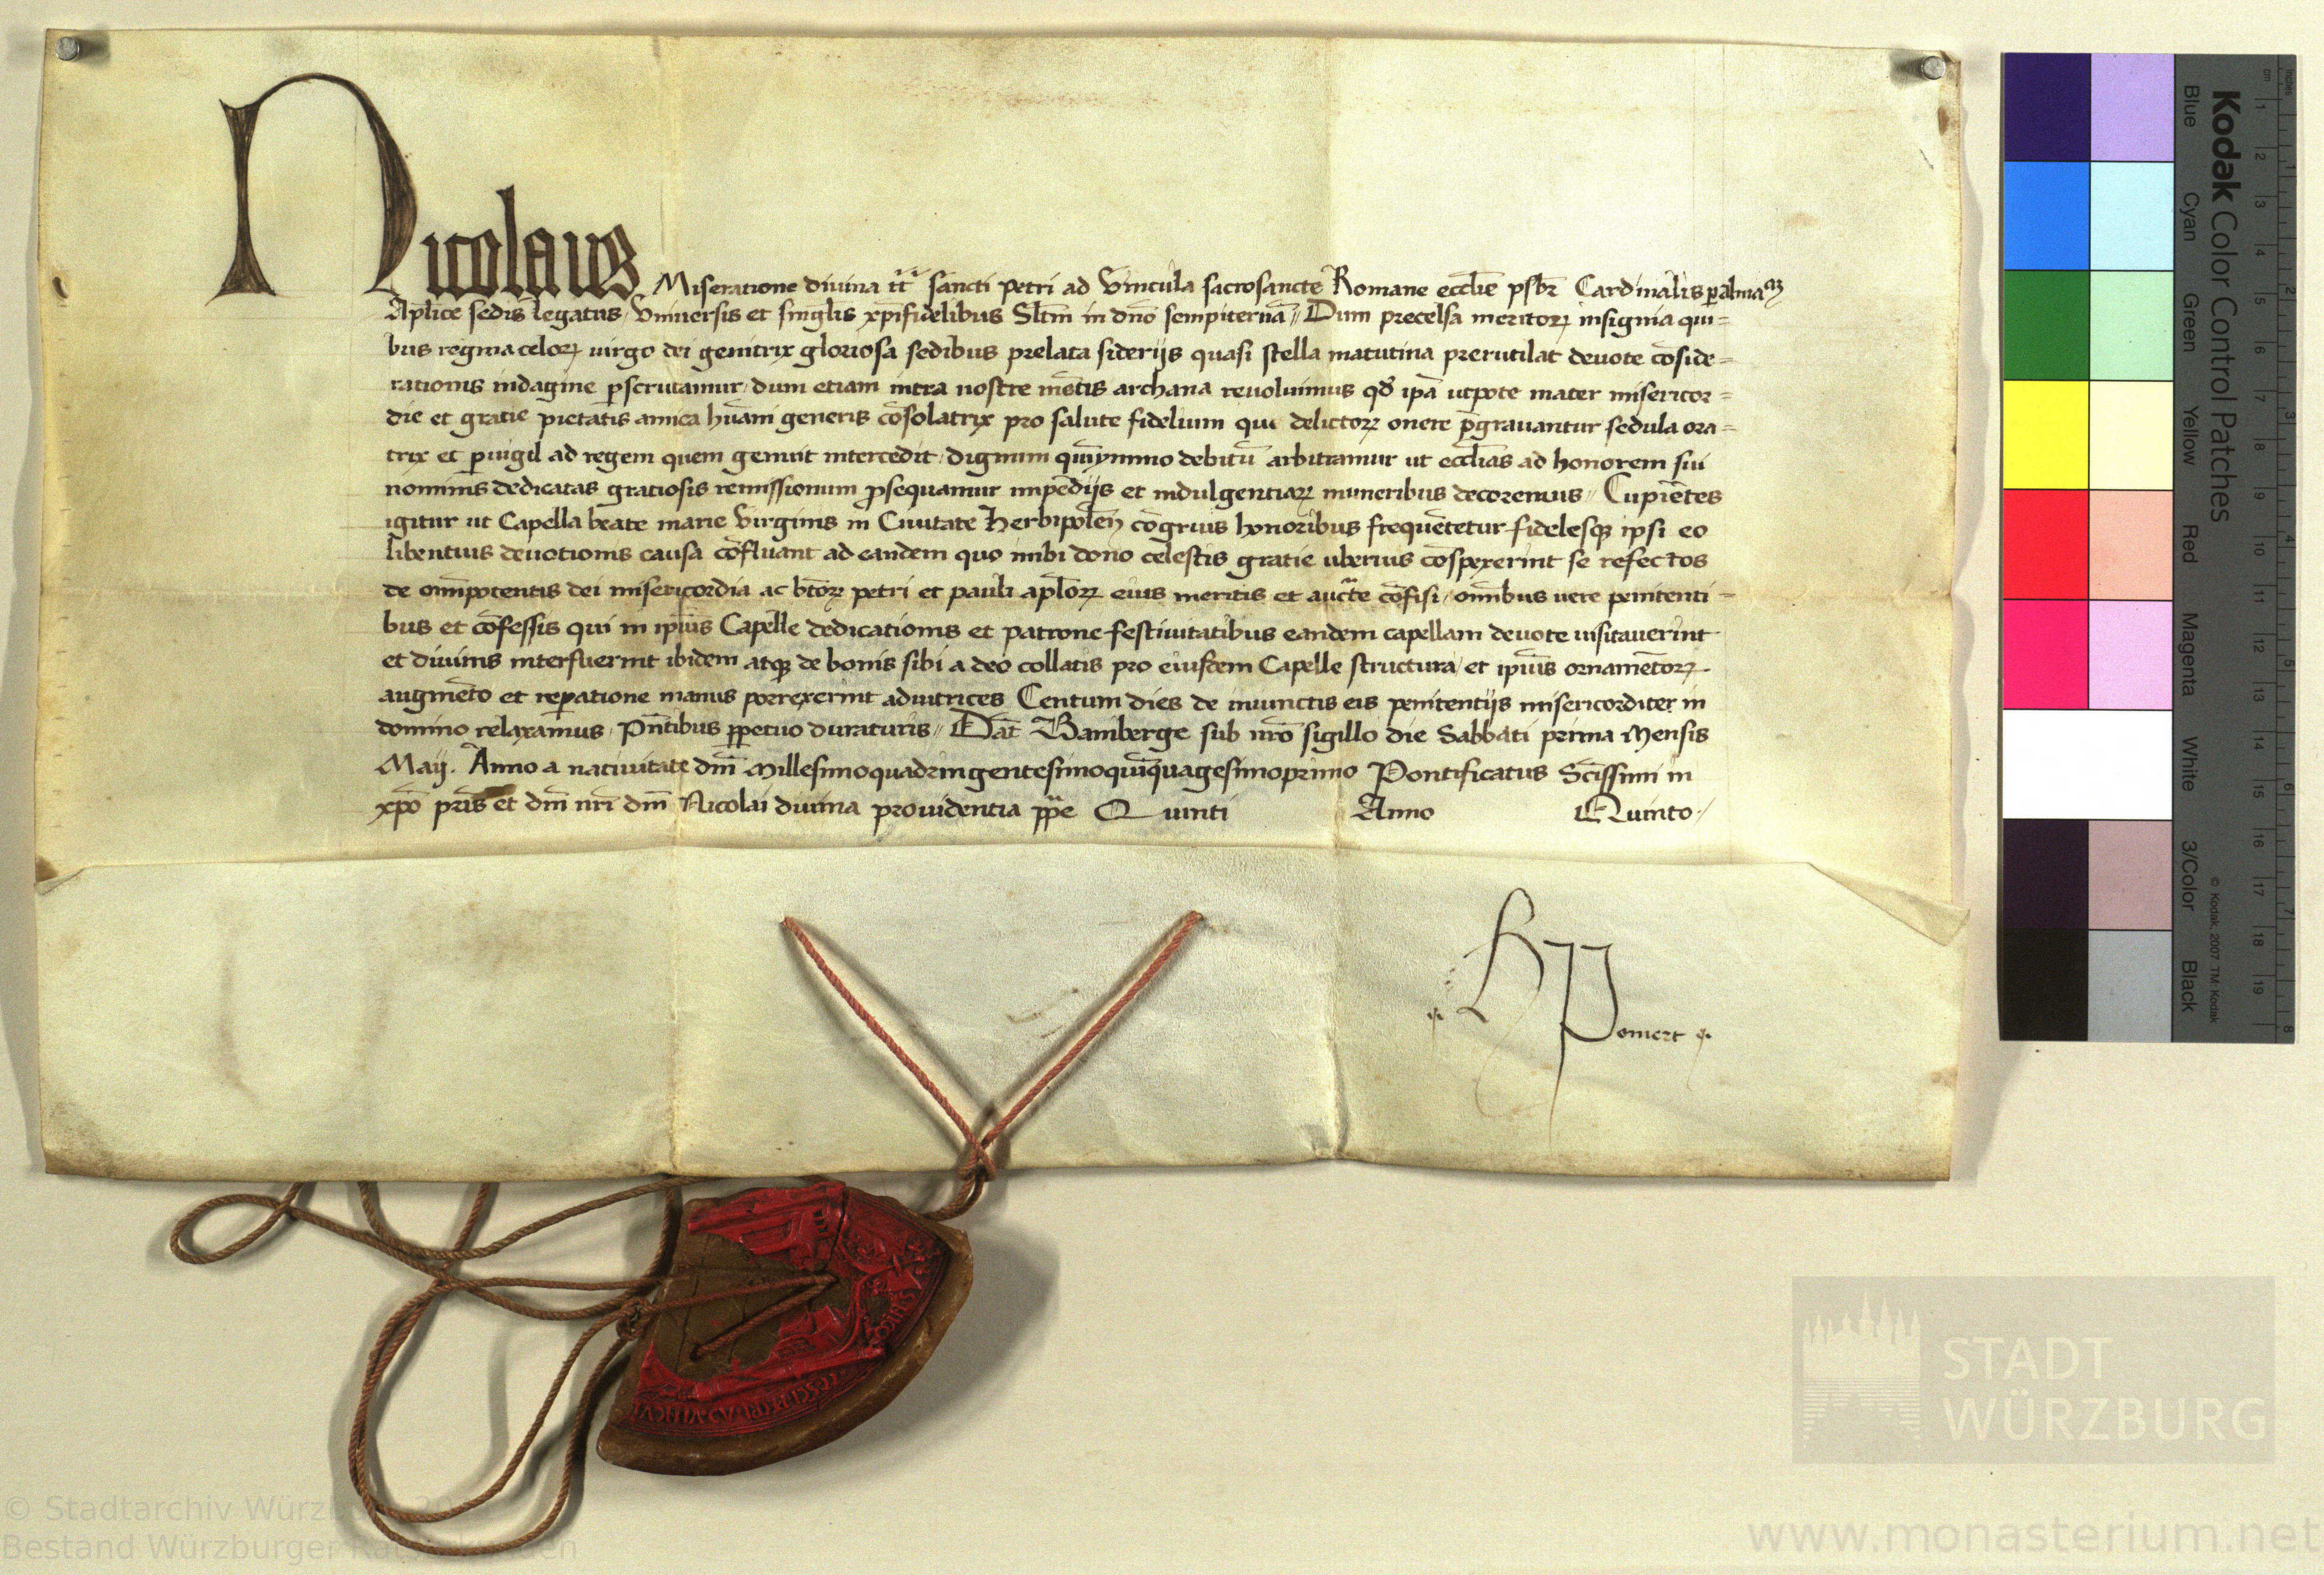 Nicolaus Miseratione diuina tt̄ sancti Petri ad Vincula sacrosancte Romane eccl̄ie psbr̄ Cardinalis p alma
Ap̄lice sedis legatus Vniuersis et singl̄is xp̄ifidelibus Slt̄m in dn̄o sempiternā // Dum precelsa meritoꝝ insignia qui=
bus regina celoꝝ uirgo dei genitrix gloriosa sedibus prelata siderijs quasi stella matutina prerutilat deuote cōside=
rationis indagine ꝑscrutamur / dum etiam intra nostre mētis archana reuoluimus qd̄ ip̄a utpote mater misericor=
die et gratie pietatis amica hūani generis cōsolatrix pro salute fidelium qui delictoꝝ onere p̄grauantur sedula ora=
trix et ꝑuigil ad regem quem genuit intercedit / dignum quīymmo debitū arbitramur ut eccl̄ias ad honorem sui
nominis dedicatas gratiosis remissionum ꝓsequamur impēdijs et indulgentiaꝝ muneribus decoremus // Cupiētes
igitur ut Capella beate marie Virginis in Ciuitate Herbipolen̄ cōgruis honoribus frequētetur fidelesqꝫ ipsi eo
libentius deuotionis causa cōfluant ad eandem quo inibi dono celestis gratie uberius cōspexerint se refectos
de om̄ipotentis dei misericordia ac bt̄oꝝ petri et pauli apl̄oꝝ eius meritis et auctt̄e cōfisi / om̄ibus uere penitenti=
bus et cōfessis qui in ipiūs Capelle dedicationis et patrone festiuitatibus eandem capellam deuote uisitauerint
et diuinis interfuerint ibidem atqꝫ de bonis sibi a deo collatis pro eiusdem Capelle structura / et ipiūs ornamētoꝝ
augmēto et reꝑatione manus porrexerint adiutrices Centum dies de iniunctis eis penitentijs misericorditer in
domino relaxamus / Pn̄tibus ꝑpetuo duraturis // Dat̄ Bamberge sub nr̄o sigillo die Sabbati prima Mensis
Maij. Anno a natiuitate dn̄i Millesimoquadringentesimoquīquagesimoprimo Pontificatus Sc̄issimi in
xp̄o pr̄is et dn̄i nr̄i dn̄i Nicolai diuina prouidentia pp̄e Quinti Anno Quinto /
H Pomert
Kodak Color Control Patches
Blue Cyan Green Yellow Red Magenta White 3/Color Black
© Kodak, 2007 TM: Kodak
STADT
WÜRZBURG
© Stadtarchiv Würzburg
Bestand Würzburger Ratsurkunden
www.monasterium.net